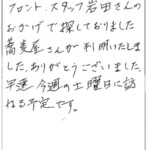 フロント、スタッフ岩田さんの
おかげで探しておりました
蕎麦屋さんが判明いたしま
した。ありがとうございました。
早速、今週の土曜日に訪
ねる予定です。